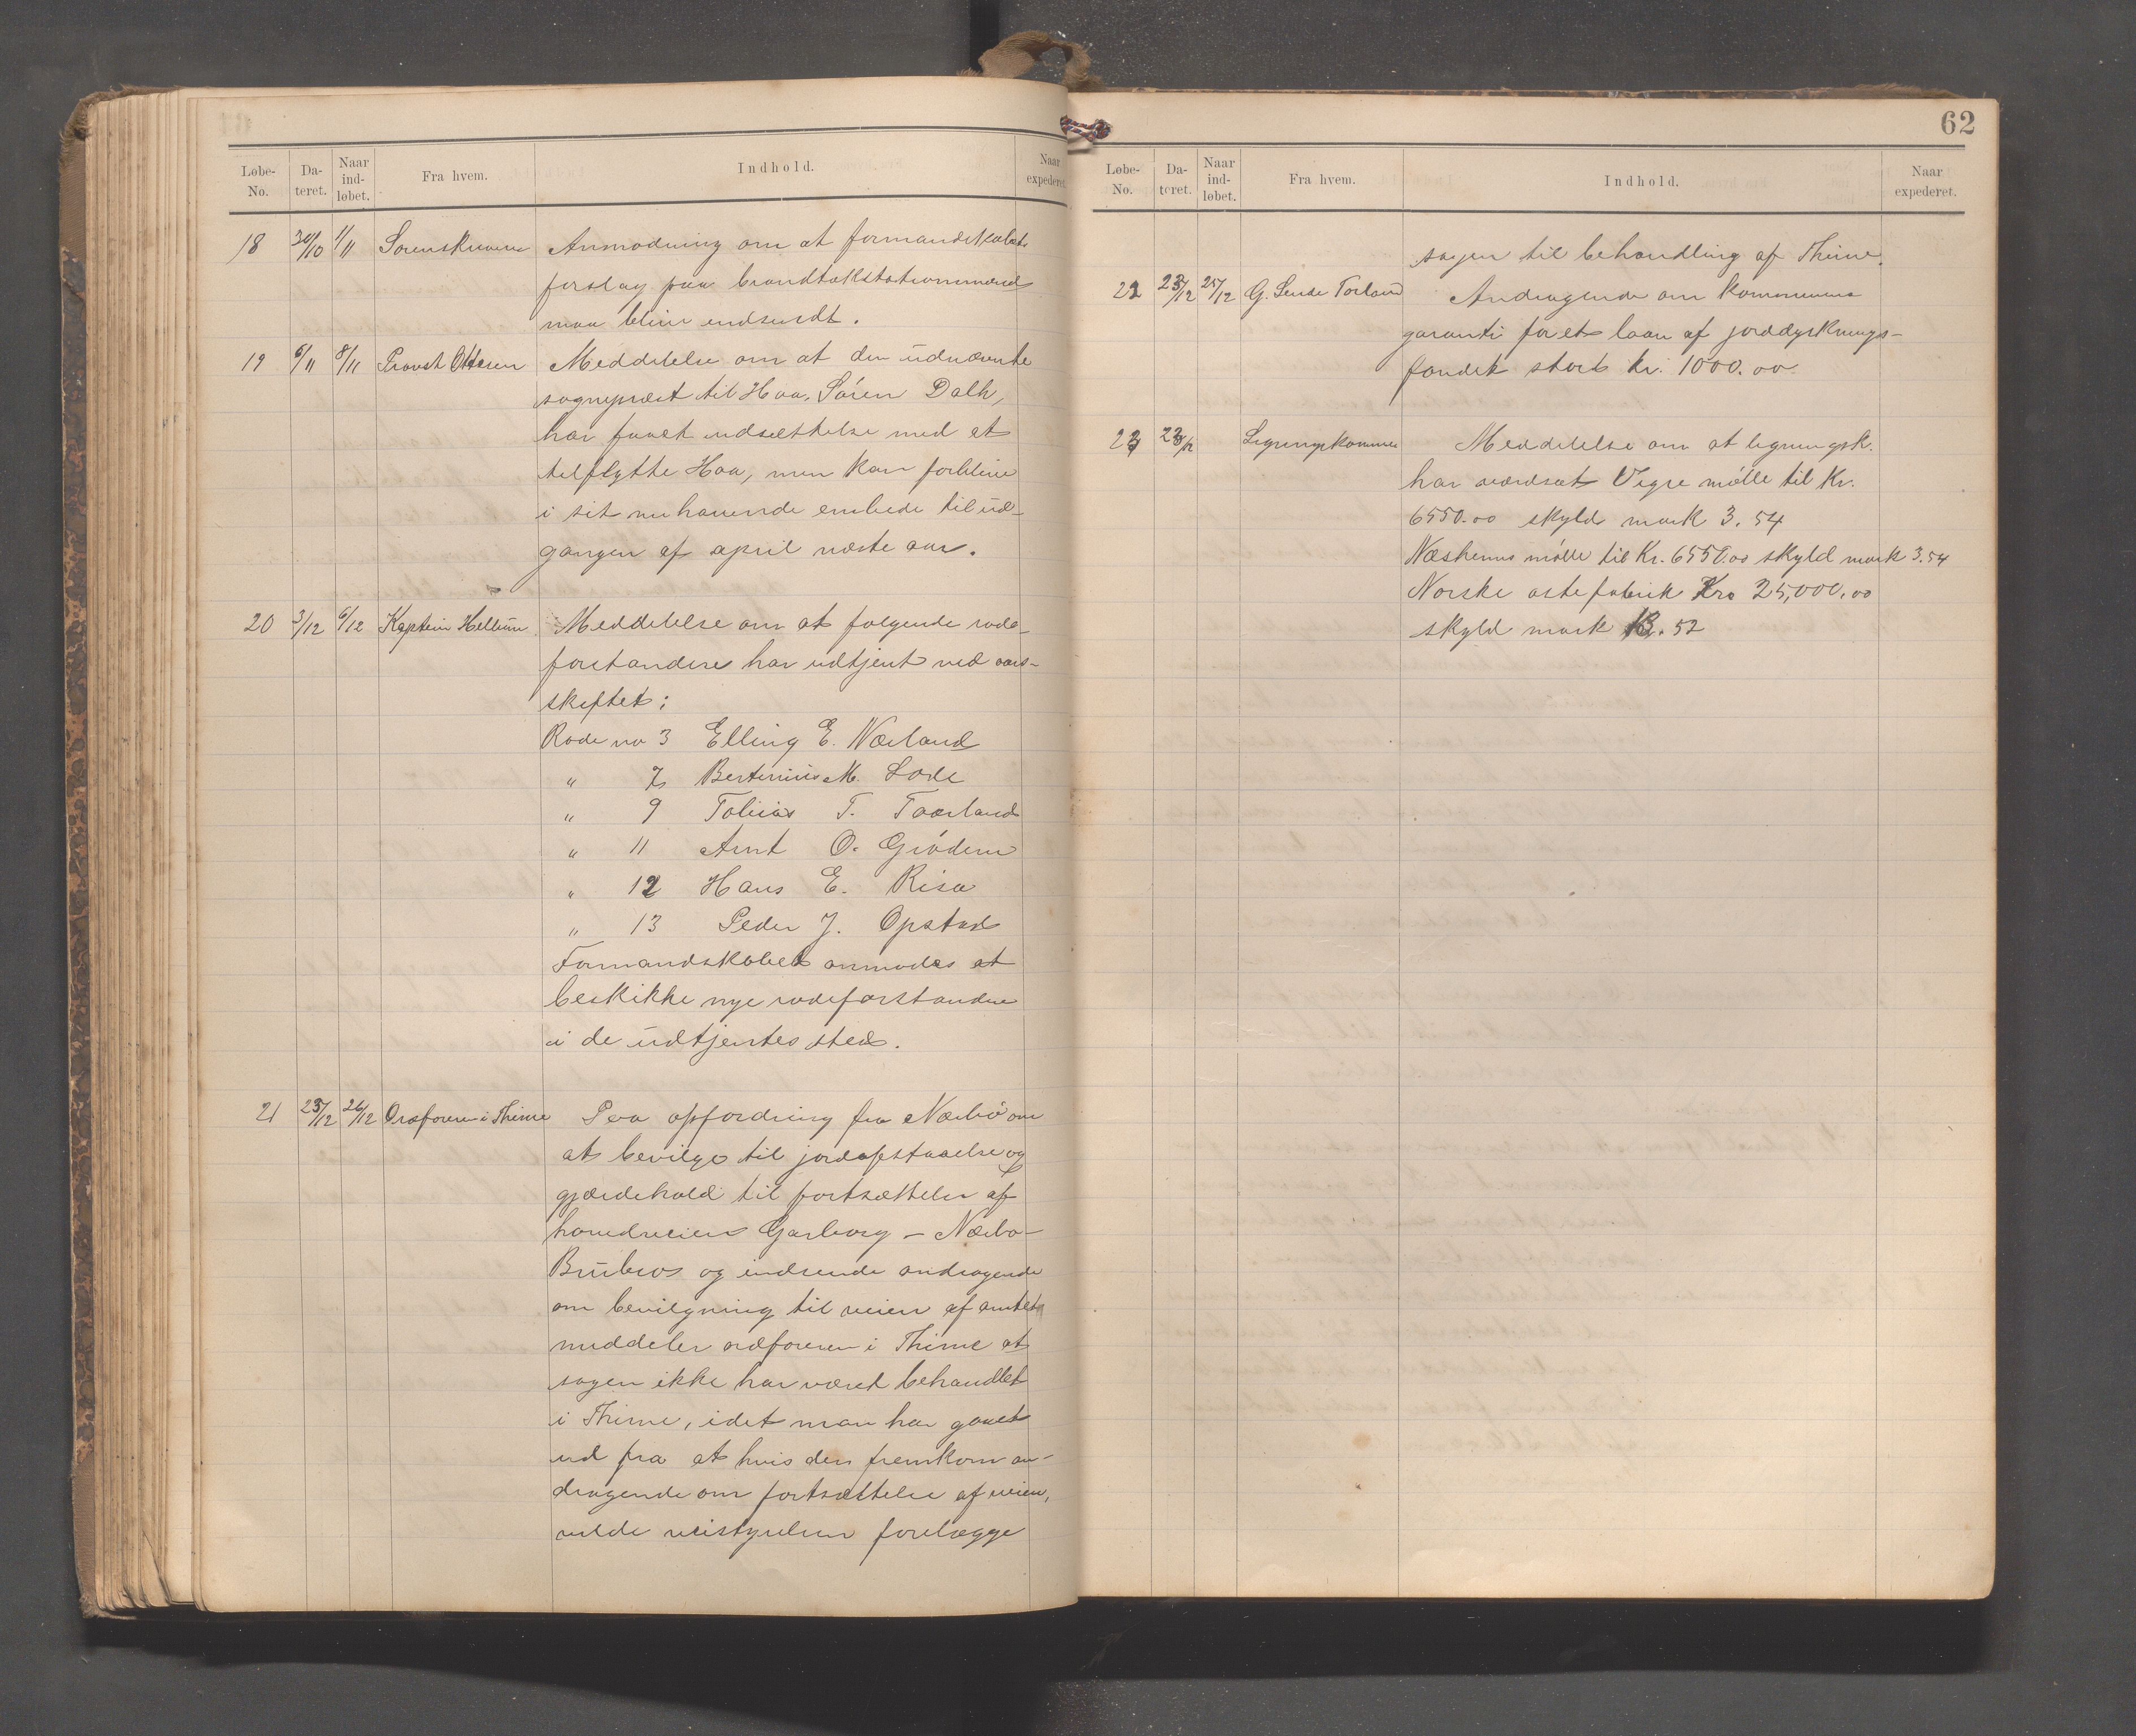 Løbe-No. Dateret. Naar indløbet. Fra hvem. Indhold. Naar expederet.
18 30/10 1/11 Sorenskriveren Anmodning om at formandskabets
forslag paa brandtakstationsmænd
maa blive indsendt.
19 6/11 8/11 Provst Ottesen Meddelelse om at den udnævnte
sogneprest til Haa, Sören Dalh,
har faaet udsættelse med at
tilflytte Haa, men kan forblive
i sit nuhavende embede til ud-
gangen af april næste aar.
20 3/12 6/12 Kaptein Hellum Meddelelse om at følgende rode-
forstandere har udtjent ved aars-
skiftet:
Rode no 3 Elling E. Nærland
" 7 Bertinius M. Lode
" 9 Tobias T. Taarland
" 11 Arnt O. Grödem
" 12 Hans E. Risa
" 13 Peder J. Opstad
Formandskabet anmodes at
beskikke nye rodeforstandere
i de udtjentes sted.
21 23/12 26/12 Ordføreren i Thime Paa opfordring fra Nærbö om
at bevilge til jordafstaaelse og
gjærdehold til fortsættelse af
hovedveien Garborg – Nærbo-
Brubros og indsende andragende
om bevilgning til veien af amtet
meddeler ordføreren i Thime at
sagen ikke har været behandlet
i Thime, idet man har gaaet
ud fra at hvis der fremkom an-
dragende om fortsættelse af veien,
vilde veistyrelsen forelægge
62
Løbe-No. Dateret. Naar indløbet. Fra hvem. Indhold. Naar expederet.
sagen til behandling af Thime.
22 23/12 25/12 G. Sende Torland Andragende om kommunens
garanti for et laan af jorddyrknings-
fondet stort kr. 1000.00
23 28/12 Ligningskommis Meddelelse om at ligningsk.
har værdsat Vigre mölle til Kr.
6550.00 skyld mark 3.54
Næsheims mölle til Kr. 6550.00 skyld mark 3.54
Norske ostefabrik Kro 25,000.00
skyld mark 13.52